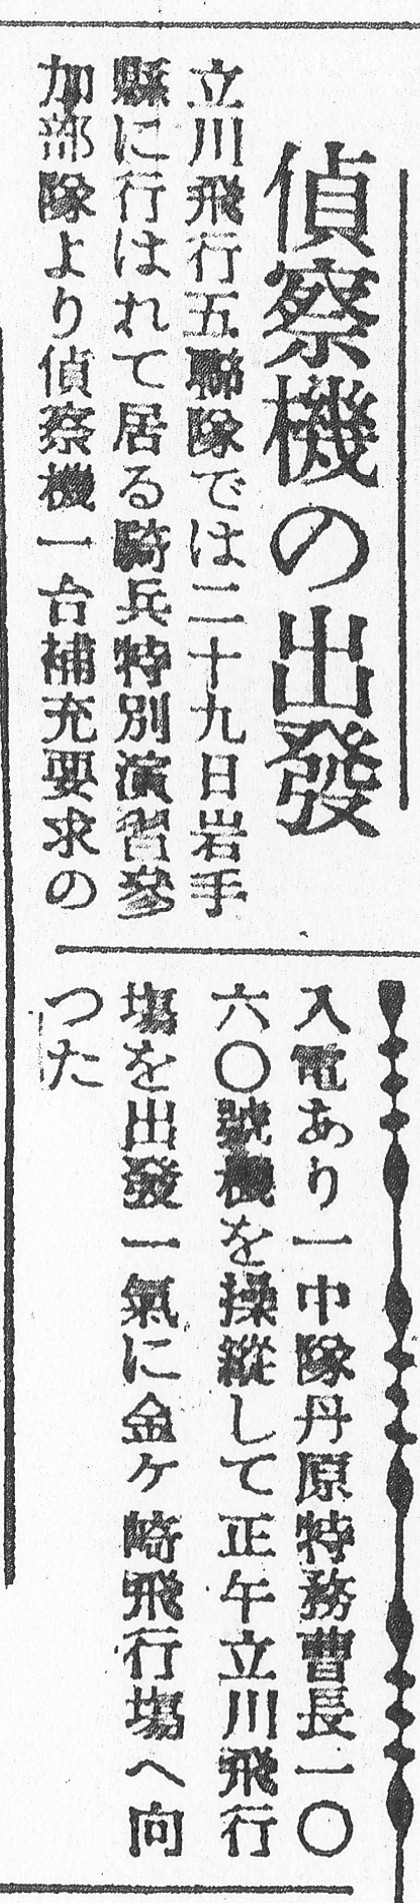 偵察機の出發
立川飛行五聯隊では二十九日岩手
縣に行はれて居る騎兵特別演習參
加部隊より偵察機一台補充要求の
入電あり一中隊丹原特務曹長一〇
六〇號機を操縱して正午立川飛行
塲を出發一氣に金ケ崎飛行塲へ向
つた